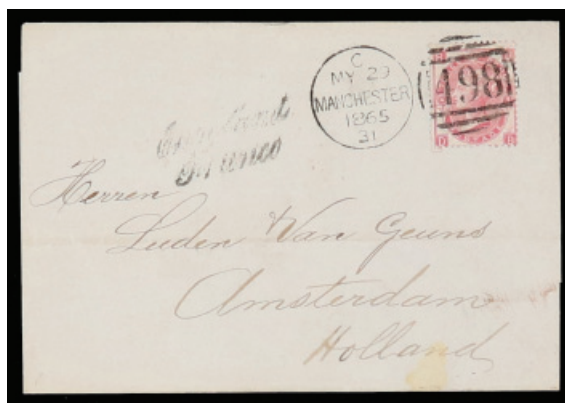 C
MY 29
MANCHESTER
1865
31
498
Franco
Herren
Luden Van Geuns
Amsterdam
Holland